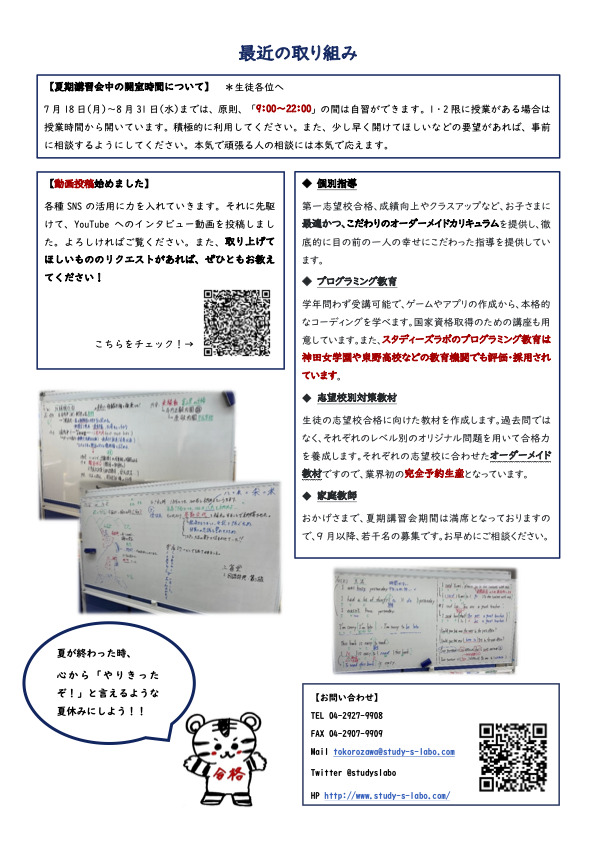 最近の取り組み
【夏期講習会中の開室時間について】　＊生徒各位へ
7月18日(月)～8月31日(水)までは、原則、「9:00～22:00」の間は自習ができます。1・2限に授業がある場合は
授業時間から開いています。積極的に利用してください。また、少し早く開けてほしいなどの要望があれば、事前
に相談するようにしてください。本気で頑張る人の相談には本気で応えます。
【動画投稿始めました】
各種SNSの活用に力を入れていきます。それに先駆
けて、YouTubeへのインタビュー動画を投稿しまし
た。よろしければご覧ください。また、取り上げて
ほしいもののリクエストがあれば、ぜひともお教え
てください！
こちらをチェック！→
◆ 個別指導
第一志望校合格、成績向上やクラスアップなど、お子さまに
最適かつ、こだわりのオーダーメイドカリキュラムを提供し、徹
底的に目の前の一人の幸せにこだわった指導を提供してい
ます。
◆ プログラミング教育
学年問わず受講可能で、ゲームやアプリの作成から、本格的
なコーディングを学べます。国家資格取得のための講座も用
意しています。また、スタディーズラボのプログラミング教育は
神田女学園や東野高校などの教育機関でも評価・採用され
ています。
◆ 志望校別対策教材
生徒の志望校合格に向けた教材を作成します。過去問では
なく、それぞれのレベル別のオリジナル問題を用いて合格力
を養成します。それぞれの志望校に合わせたオーダーメイド
教材ですので、業界初の完全予約生産となっています。
◆ 家庭教師
おかげさまで、夏期講習会期間は満席となっておりますの
で、9月以降、若干名の募集です。お早めにご相談ください。
夏が終わった時、
心から「やりきった
ぞ！」と言えるような
夏休みにしよう！！
合格
【お問い合わせ】
TEL 04-2927-9908
FAX 04-2907-9909
Mail tokorozawa@study-s-labo.com
Twitter @studyslabo
HP http://www.study-s-labo.com/